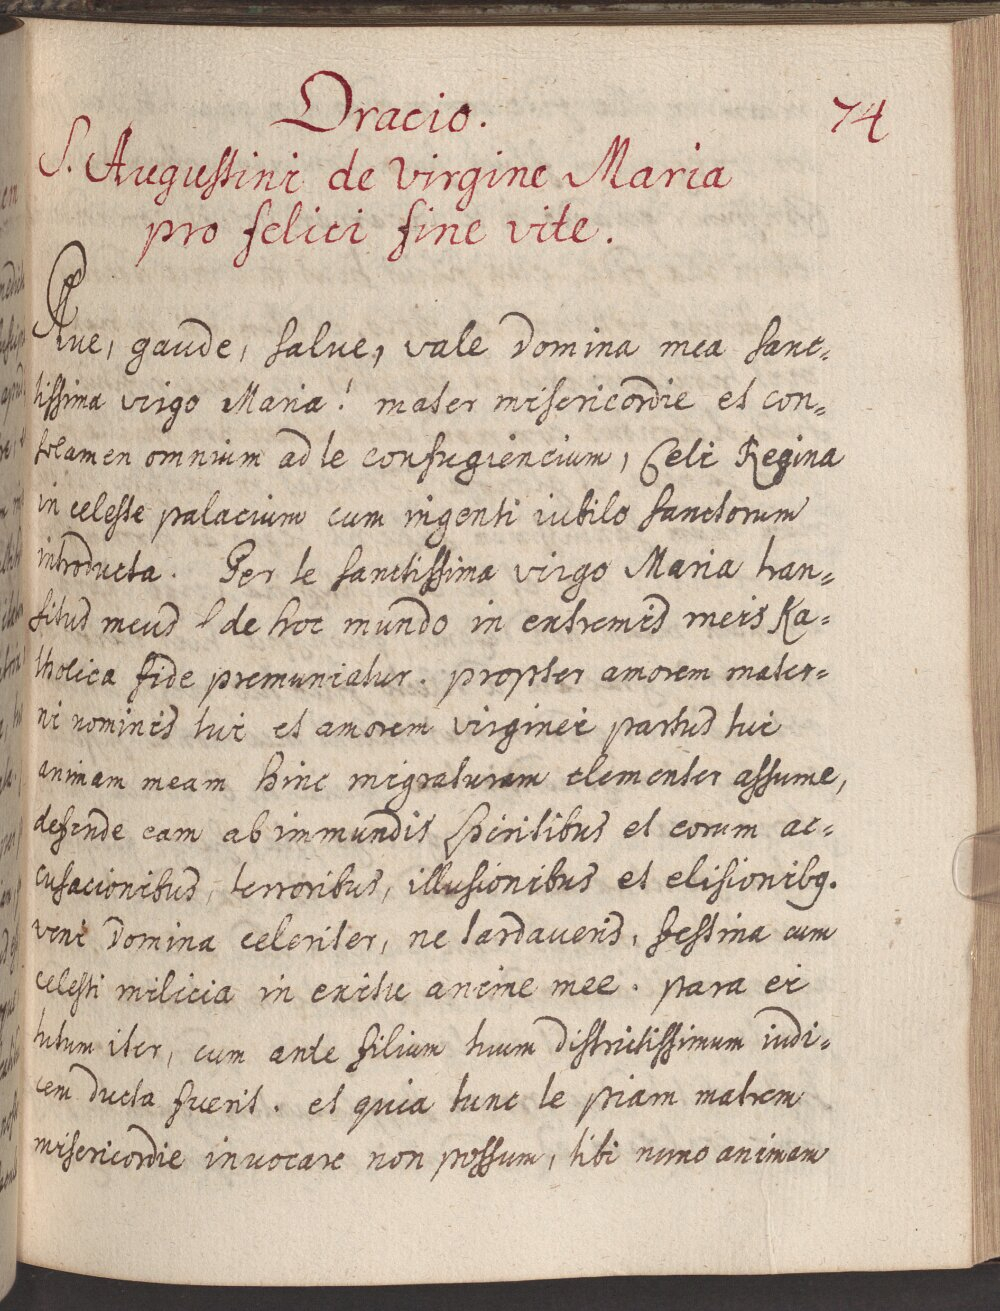 Oracio.
74
S. Augustini de virgine Maria
pro felici fine vite.
Aue, gaude, salue, vale Domina mea sanc-
tissima virgo Maria! mater misericordie et con-
solamen omnium ad te confugiencium, Celi Regina
in celeste palacium cum ingenti iubilo sanctorum
introducta. Per te sanctissima virgo Maria tran-
situs meus de hoc mundo in extremis meis Ka-
tholica fide premuniatur. propter amorem mater-
ni nominis tui et amorem virginei partus tui
animam meam hinc migraturam clementer assume,
defende eam ab immundis Spiritibus et eorum ac-
cusacionibus, terroribus, illusionibus et elisionibq.
veni Domina celeriter, ne tardaueris, festina cum
celesti milicia in exitu anime mee. para ei
tutum iter, cum ante filium tuum districtissimum iudi-
cem ducta fuerit. et quia tunc te piam matrem
misericordie inuocare non possum, tibi nunc animam